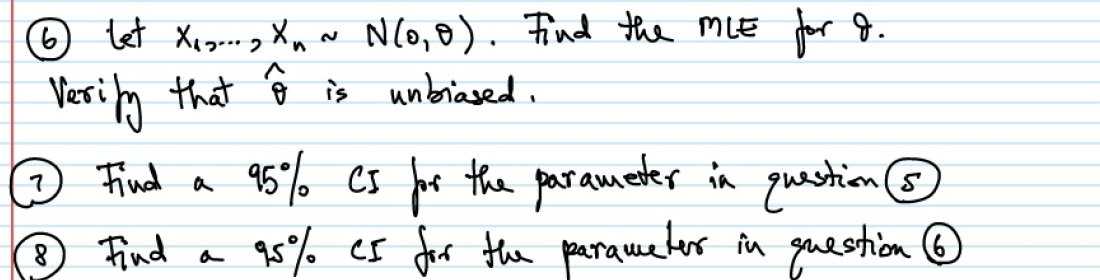 ⑥ Let X₁,...,Xₙ ~ N(0,θ). Find the MLE for θ.
Verify that θ̂ is unbiased.
⑦ Find a 95% CI for the parameter in question ⑤
⑧ Find a 95% CI for the parameter in question ⑥